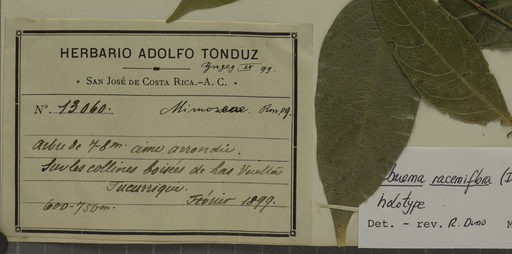 HERBARIO ADOLFO TONDUZ
99.
SAN JOSÉ DE COSTA RICA.-A. C.
Nº. 13060. Mimosaceae
arbre de 7-8 m. cime arrondie.
Sur les collines boisées de Las Vueltas
Tucurrique.
600-750m. Février 1899.
racemiflora (D
holotype
Det. - rev. R. Dino M